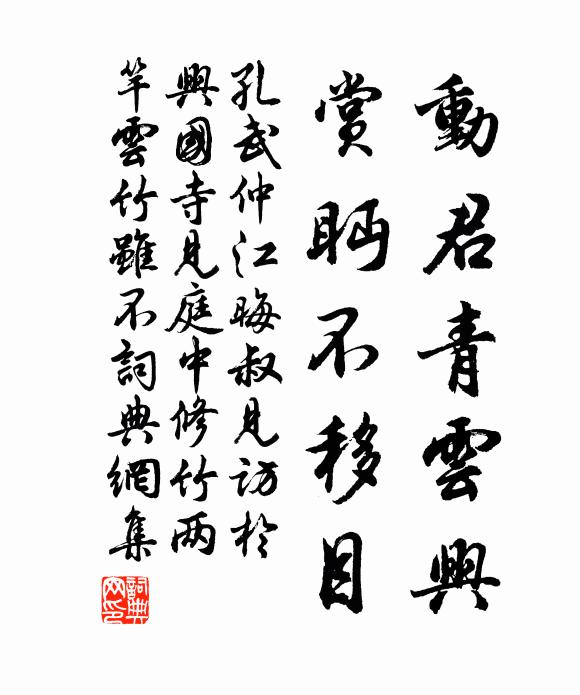 動君青雲興
賞眄不移目
孔武仲江晦叔見訪於
興國寺見庭中修竹两
竿雲竹雖不詞典網集
詞典
网印